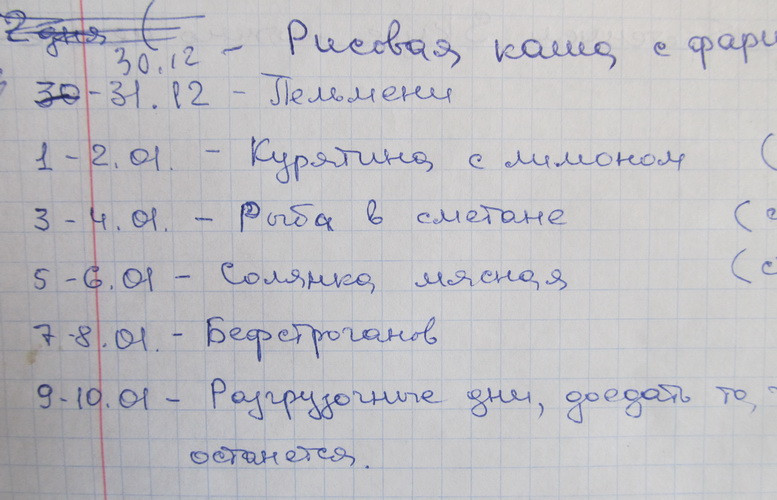 2 дня (
30.12 - Рисовая каша с фари
30 - 31.12 - Пельмени
1 - 2.01. - Курятина с лимоном (
3 - 4.01. - Рыба в сметане (с
5 - 6.01 - Солянка мясная (с
7-8.01. - Бефстроганов
9-10.01 - Разгрузочные дни, доедать то,
останется.